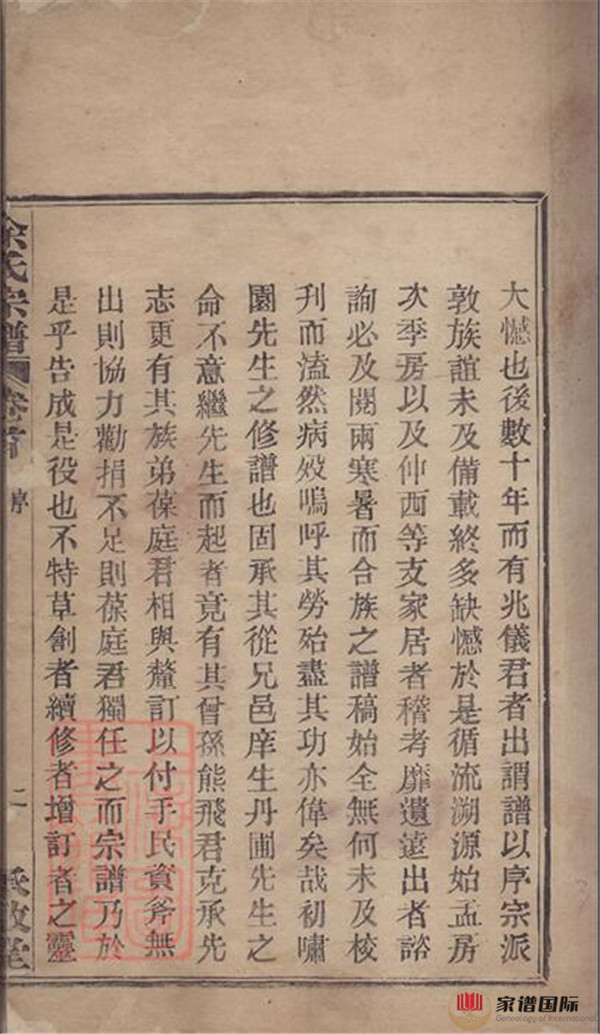 大憾也後數十年而有兆儀君者出謂譜以序宗派
敦族誼未及備載終多缺憾於是循流溯源始孟房
次季房以及仲西等支家居者稽考靡遺遠出者諮
詢必及閱兩寒暑而合族之譜稿始全無何未及校
刊而溘然病歿嗚呼其勞殆盡其功亦偉矣哉初嘯
園先生之修譜也固承其從兄邑庠生丹圃先生之
命不意繼先生而起者竟有其曾孫熊飛君克承先
志更有其族弟葆庭君相與釐訂以付手民資斧無
出則協力勸捐不足則葆庭君獨任之而宗譜乃於
是乎告成是役也不特草創者續修者增訂者之靈
余氏宗譜
卷首
序
二
家谱国际
Genealogy of International